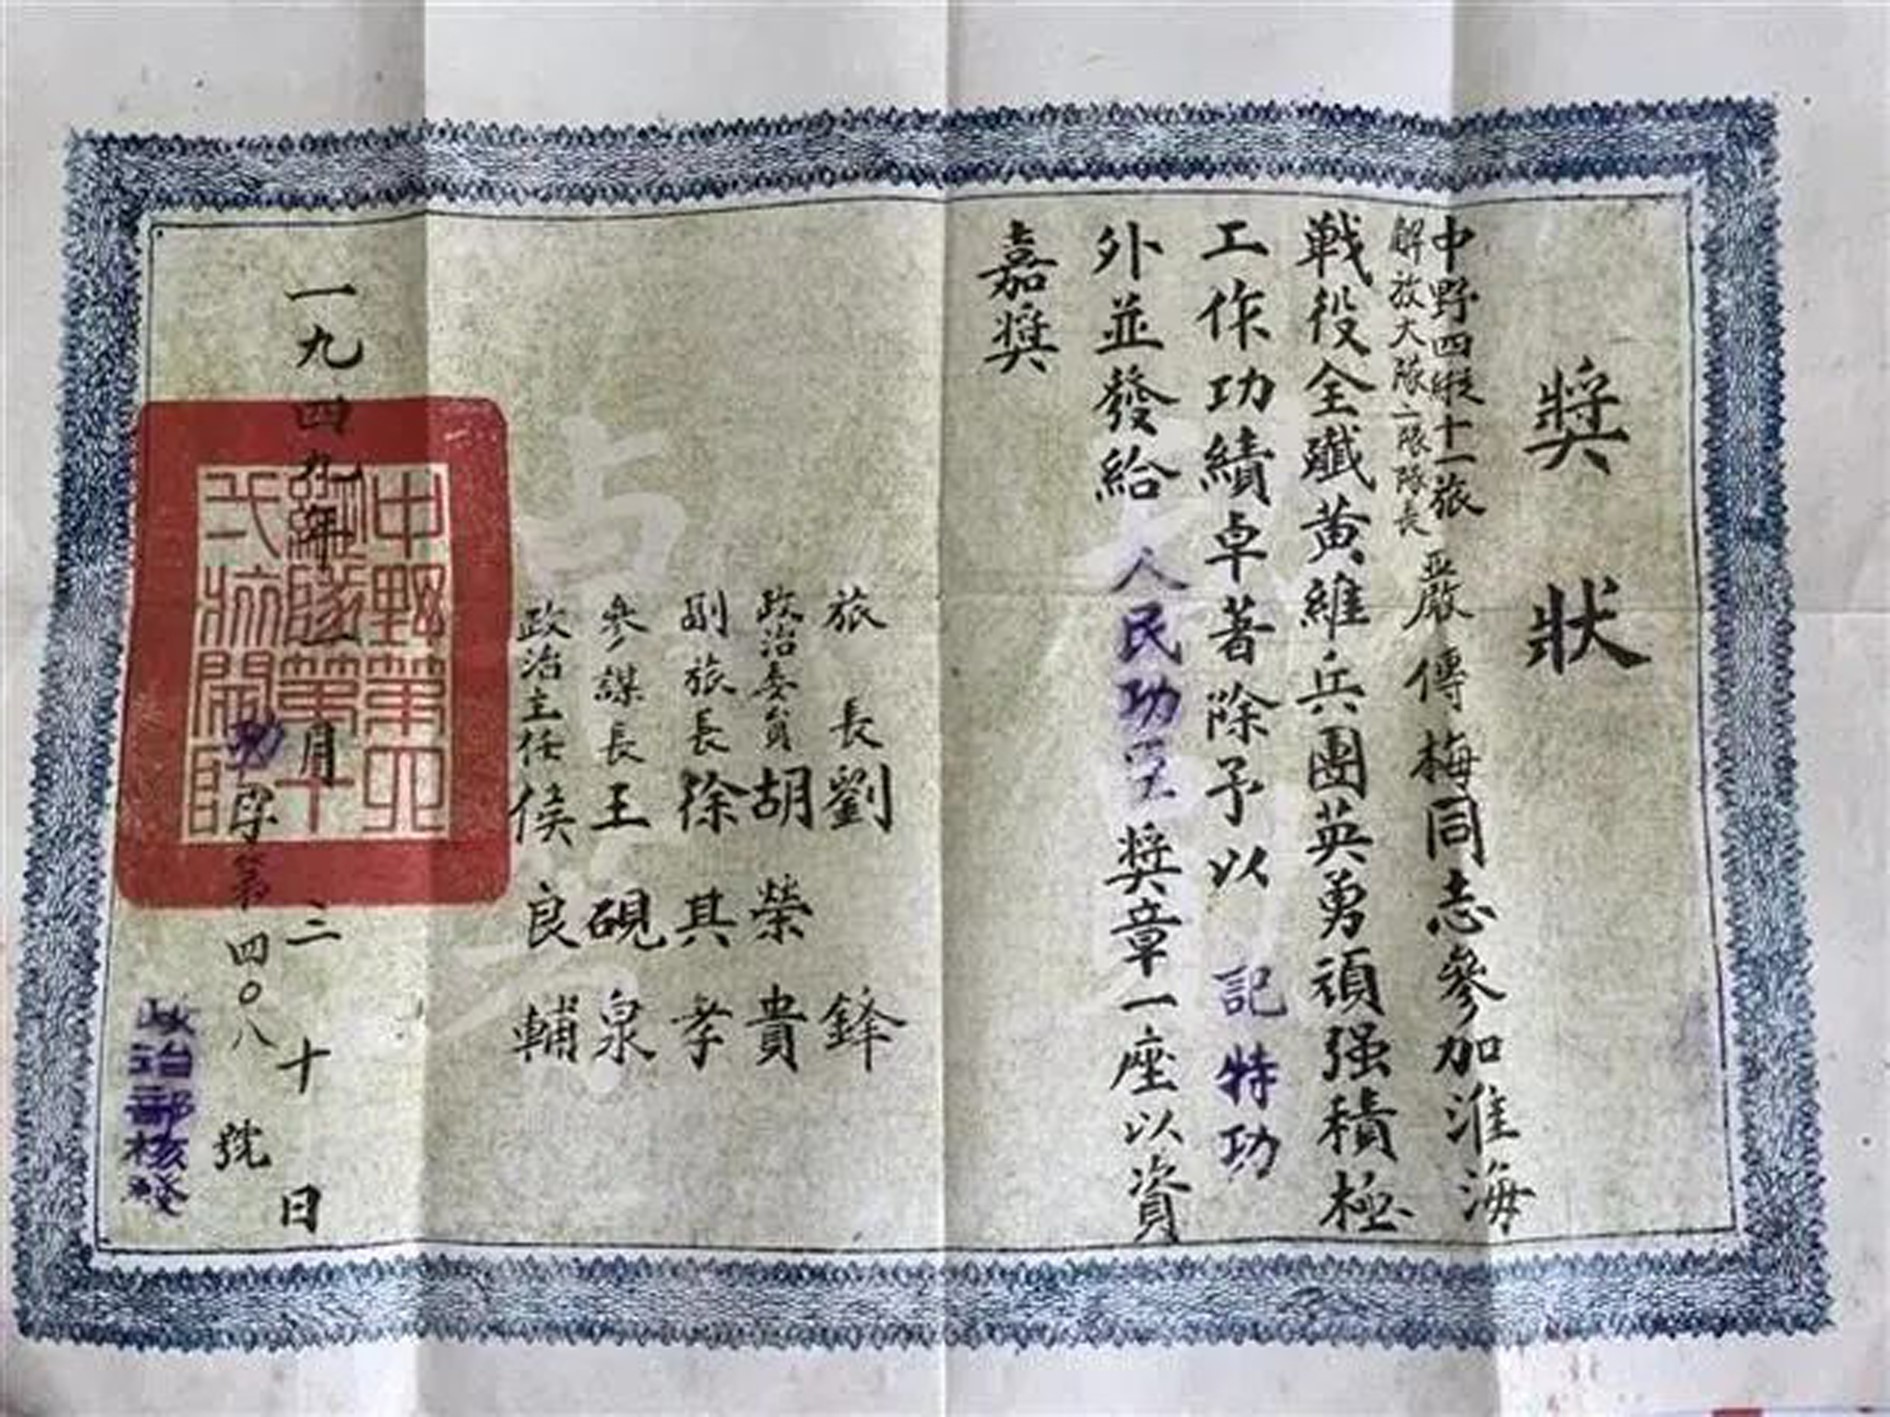 獎狀
中野四縱十一旅
解放大隊一隊隊長
嚴傳梅同志參加淮海
戰役全殲黄維兵團英勇頑强積極
工作功績卓著除予以記特功
外並發給人民功臣獎章一座以資
嘉獎
旅長劉鋒
政治委員胡榮貴
副旅長徐其孝
參謀長王硯泉
政治主任侯良輔
一九四九年月二十日
中野第四
縱隊第十
功字第四〇八號
政治部核發